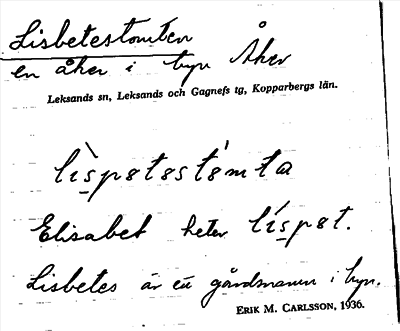 Lisbetestomten Åker
en åker i byn Åker
Leksands sn, Leksands och Gagnefs tg, Kopparbergs län.
lìspətəstòmta
Elisabet heter líspət.
Lisbetes är ett gårdsnamn i byn.
ERIK M. CARLSSON, 1936.